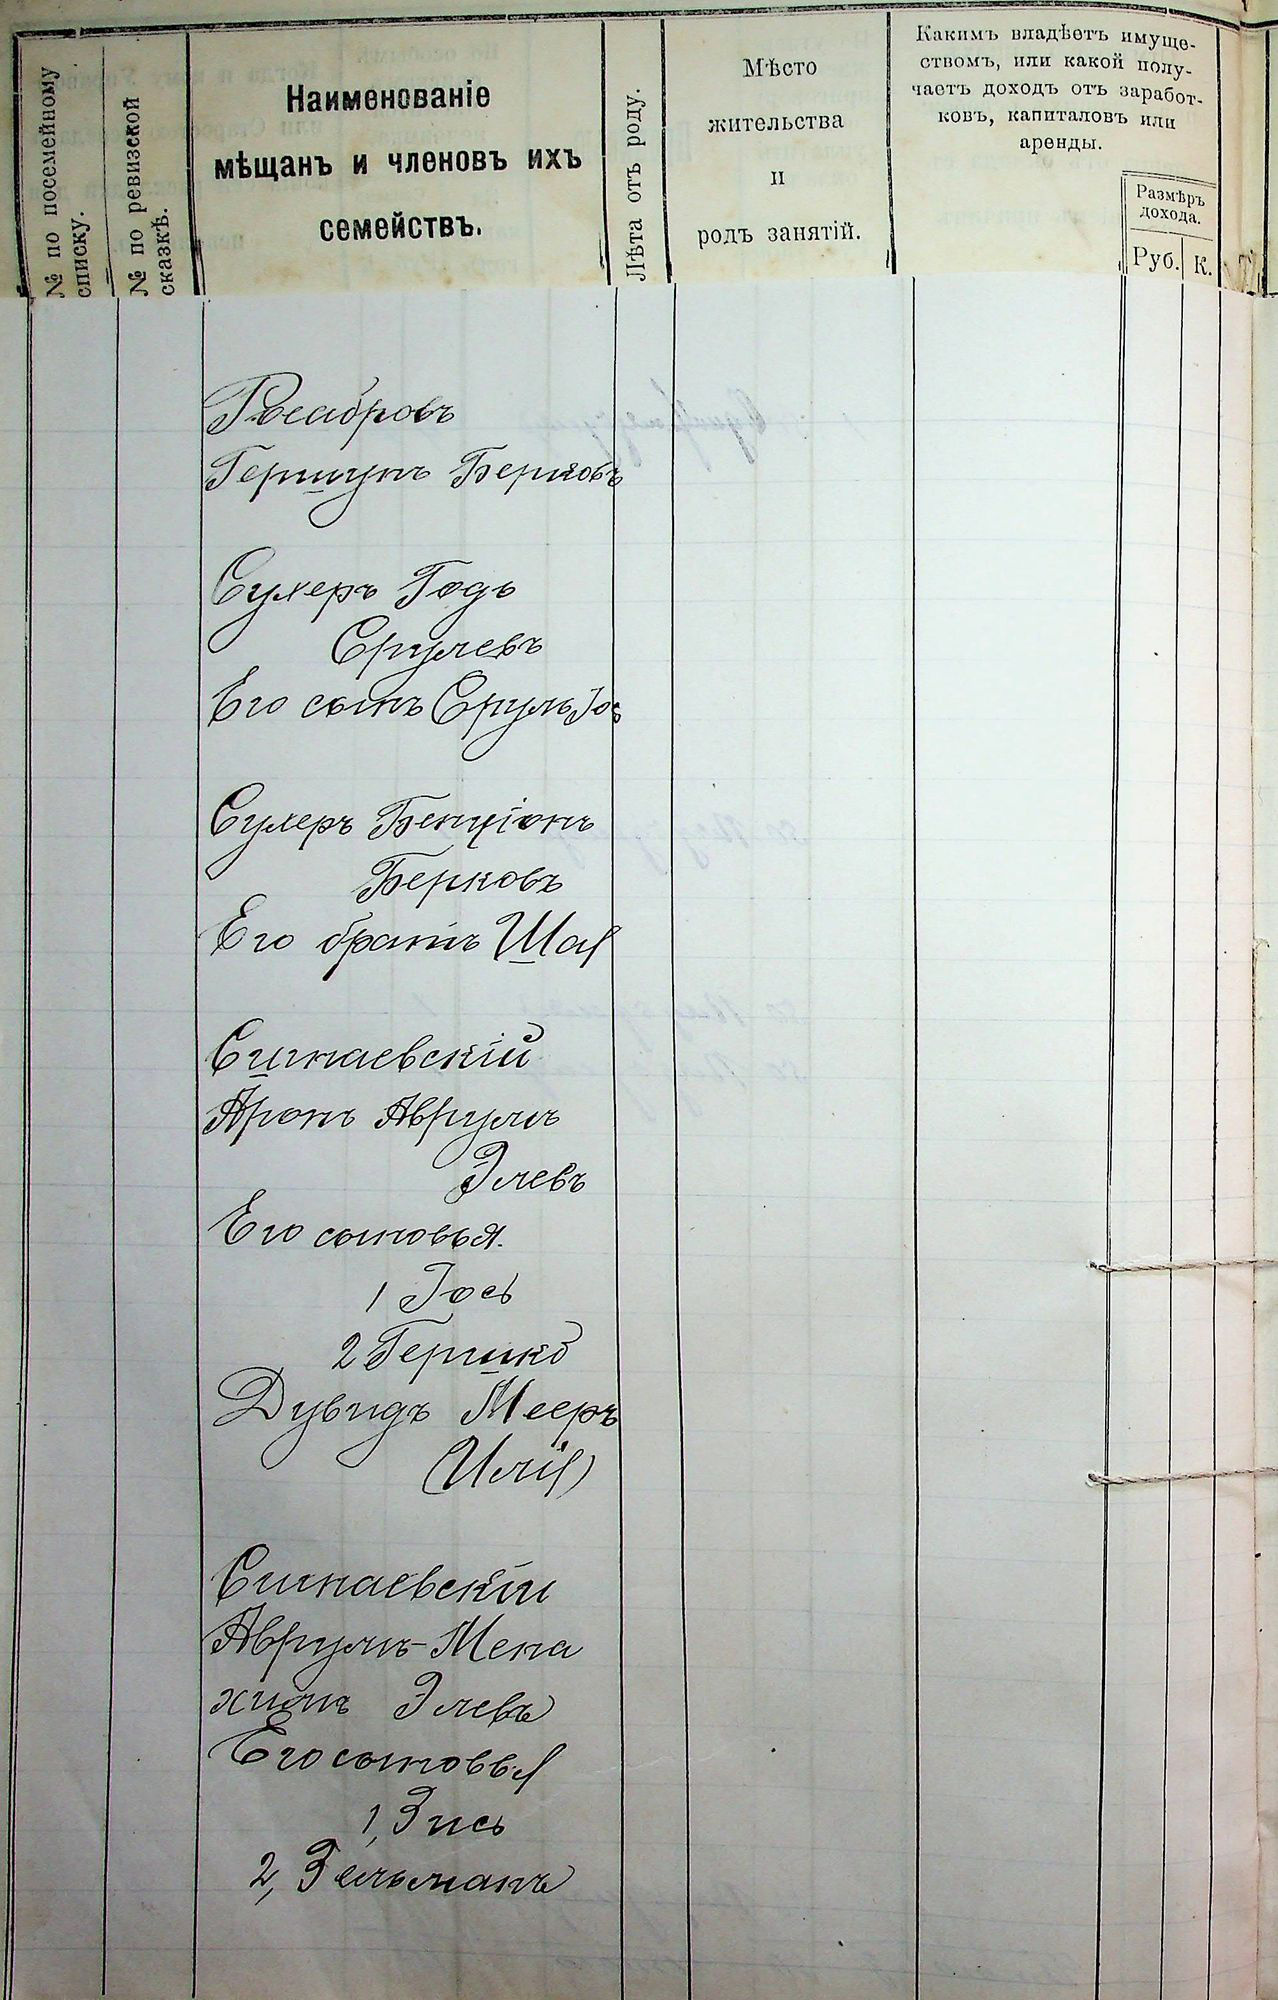 № по посемейному
списку.
№ по ревизской
сказкѣ.
Наименованіе
мѣщанъ и членовъ ихъ
семействъ.
Лѣта отъ роду.
Мѣсто
жительства
и
родъ занятій.
Какимъ владѣетъ имуще-
ствомъ, или какой полу-
чаетъ доходъ отъ заработ-
ковъ, капиталовъ или
аренды.
Размѣръ
дохода.
Руб.
К.
Гершунъ Берковъ
Сулеръ Годь
Срулевъ
Его сынъ Сруль Іось
Сулеръ Бенціонъ
Берковъ
Его братъ Шая
Синаевскій
Аронъ Аврумъ
Элевъ
Его сыновья.
1 Іось
2 Гершко
Дувидъ Мееръ
(Илія)
Синаевскій
Аврумъ-Мена
химъ Элевъ
Его сыновья
1, Зись
2, Зельманъ